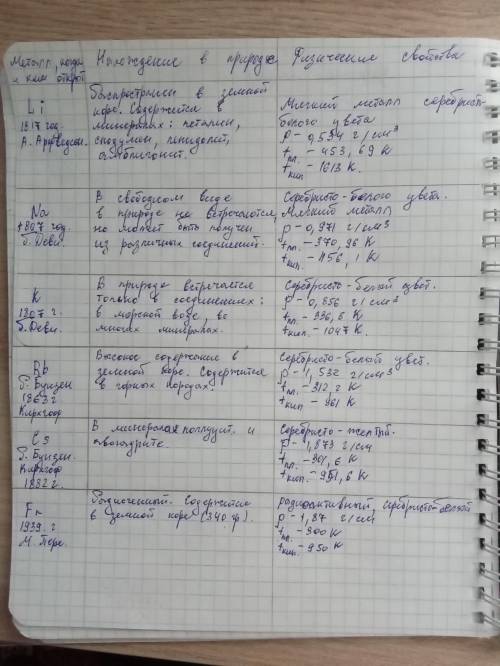 Металл, когда и кем открыт
Нахождение в природе
Физические свойства
Li
1817 год.
А. Арфведсон.
Распространён в земной
коре. Содержится в
минералах: петалит,
сподумен, лепидолит,
амблигонит.
Мягкий металл серебристо-
белого цвета
ρ - 0,534 г/см³
tпл. - 453,69 К
tкип. - 1613 К.
Na
1807 год.
Г. Деви.
В свободном виде
в природе не встречается,
но может быть получен
из различных соединений.
Серебристо-белого цвета.
Мягкий металл
ρ - 0,971 г/см³
tпл. - 370,96 К
tкип. - 1156,1 К
K
1807 г.
Г. Деви.
В природе встречается
только в соединениях:
в морской воде, во
многих минералах.
Серебристо-белый цвет.
ρ - 0,856 г/см³
tпл. - 336,8 К
tкип. - 1047 К.
Rb
Р. Бунзен
Кирхгоф
Высокое содержание в
земной коре. Содержится
в горных породах.
Серебристо-белый цвет.
ρ - 1,532 г/см³
tпл. - 312,2 К
tкип - 961 К
Cs
Р. Бунзен.
Кирхгоф
1882 г.
В минералах поллуцит и
авогадрите.
Серебристо-желтый.
ρ - 1,873 г/см
tпл. - 301,6 К
tкип. - 951,6 К
Fr
1939. г
М. Пере.
Содержится
в земной коре (340 гр).
радиоактивный, серебристо-белый
ρ - 1,87 г/см
tпл. - 300 К
tкип. - 950 К